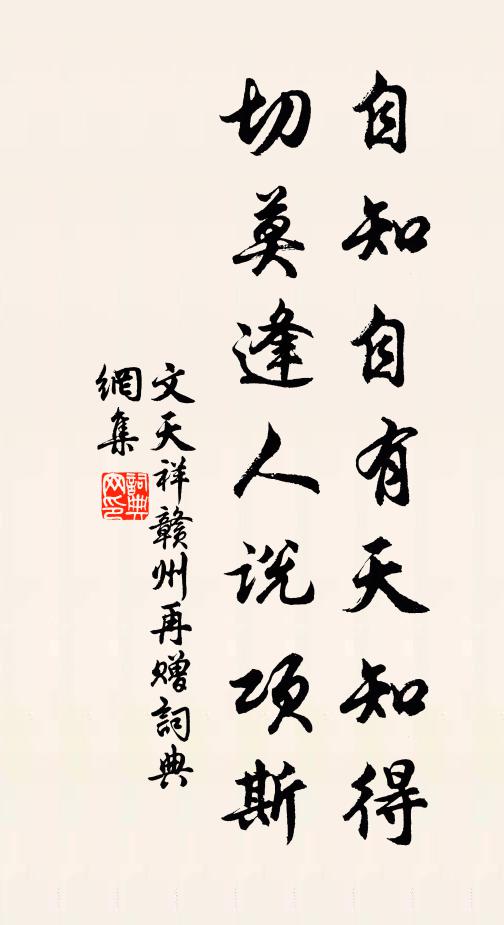 自知自有天知得
切莫逢人说项斯
文天祥赣州再赠詞典
網集
詞典
网印